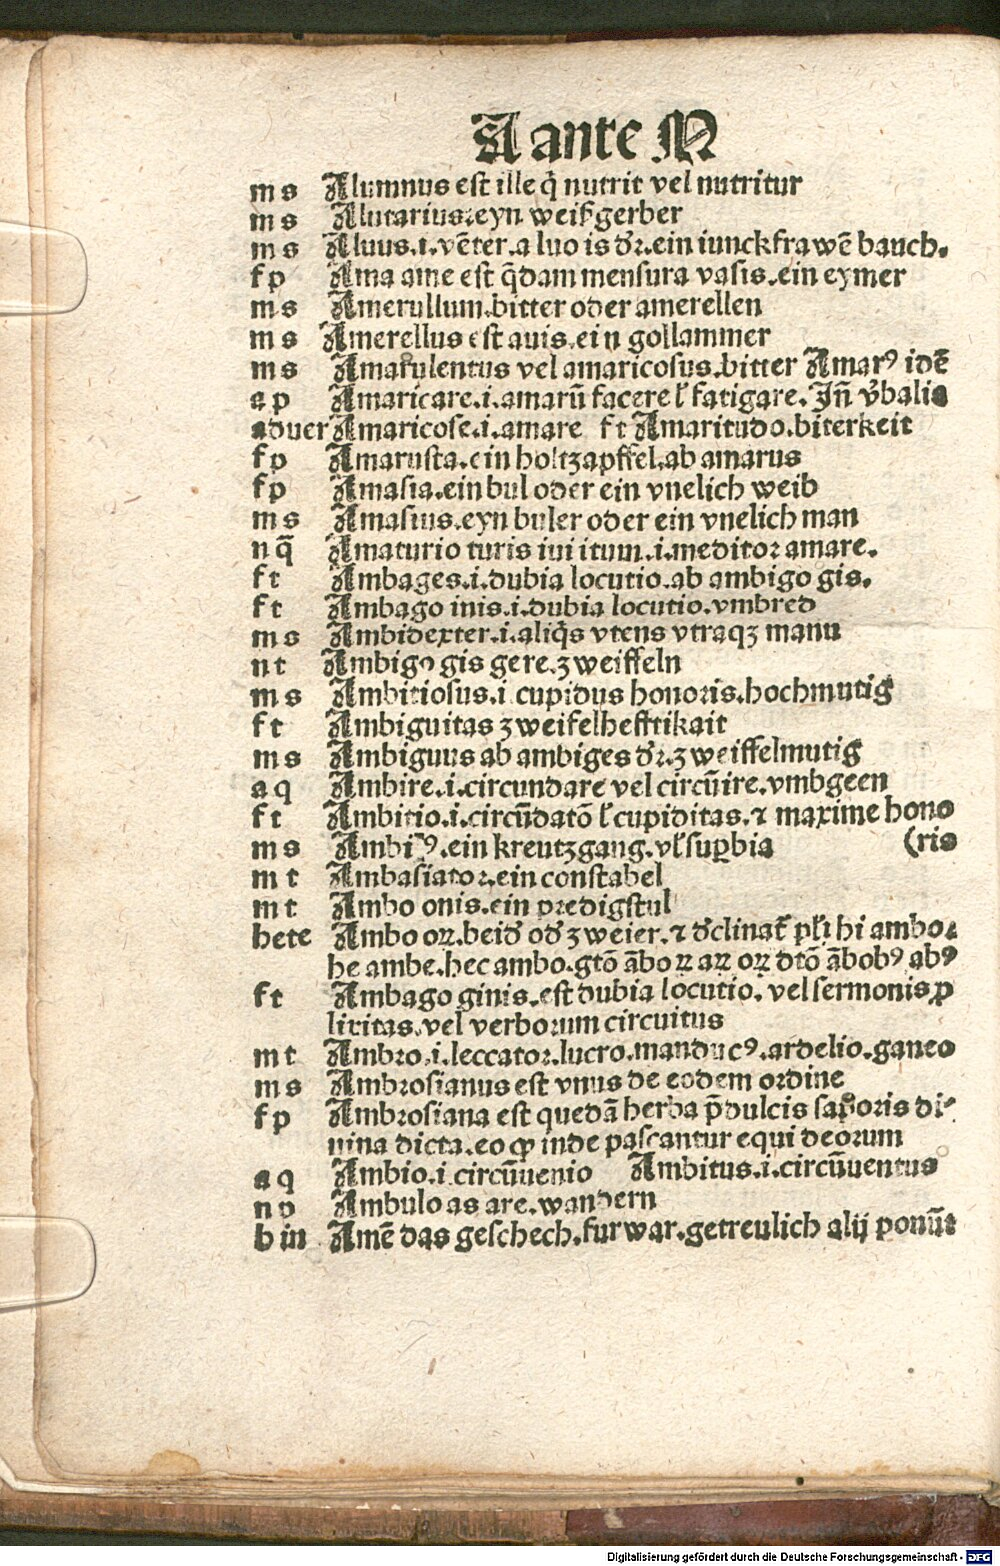 A ante M
m s Alumnus est ille q̃ nutrit vel nutritur
m s Alutarius.eyn weißgerber
m s Aluus.i.vẽter.a luo is dr̃.ein iunckfrawẽ bauch.
f p Ama ame est q̃dam mensura vasis.ein eymer
m s Amerullum.bitter oder amerellen
m s Amerellus est auis.ein gollammer
m s Amarulentus vel amaricosus.bitter Amarꝰ idẽ
a p Amaricare.i.amarũ facere ł fatigare. Jñ v̾balia
aduer Amaricose.i.amare f t Amaritudo.biterkeit
f p Amarusta.ein holtzapffel.ab amarus
f p Amasia.ein bul oder ein vnelich weib
m s Amasius.eyn buler oder ein vnelich man
n q̃ Amaturio turis iui itum.i.meditor amare.
f t Ambages.i.dubia locutio.ab ambigo gis.
f t Ambago inis.i.dubia locutio.vmbred
m s Ambidexter.i.aliq̃s vtens vtraqꝫ manu
n t Ambigo gis gere.zweiffeln
m s Ambitiosus.i cupidus honoris.hochmutig
f t Ambiguitas zweifelhefftikait
m s Ambiguus ab ambiges dr̃.zweiffelmutig
a q Ambire.i.circundare vel circũire.vmbgeen
f t Ambitio.i.circũdatõ ł cupiditas.⁊ maxime hono
m s Ambitꝰ.ein kreutzgang.vł suꝑbia (ris
m t Ambasiator.ein constabel
m t Ambo onis.ein predigstul
hete Ambo oꝝ.beid̾ od̾ zweier.⁊ d̾clinat̾ pl̾i hi ambo.
he ambe.hec ambo.gtõ ãbo ꝝ aꝝ oꝝ dtõ ãbobꝰ abꝰ
f t Ambago ginis.est dubia locutio. vel sermonis ꝓ
lixitas.vel verborum circuitus
m t Ambro.i.leccator.lucro.manducꝰ.ardelio.ganeo
m s Ambrosianus est vnus de eodem ordine
f p Ambrosiana est quedã herba p̃dulcis saporis di⸗
uina dicta.eo ꝙ inde pascantur equi deorum
a q Ambio.i.circũuenio Ambitus.i.circũuentus
n p Ambulo as are.wandern
b in Amẽ das geschech.furwar.getreulich alij ponũt
Digitalisierung gefördert durch die Deutsche Forschungsgemeinschaft - DFG